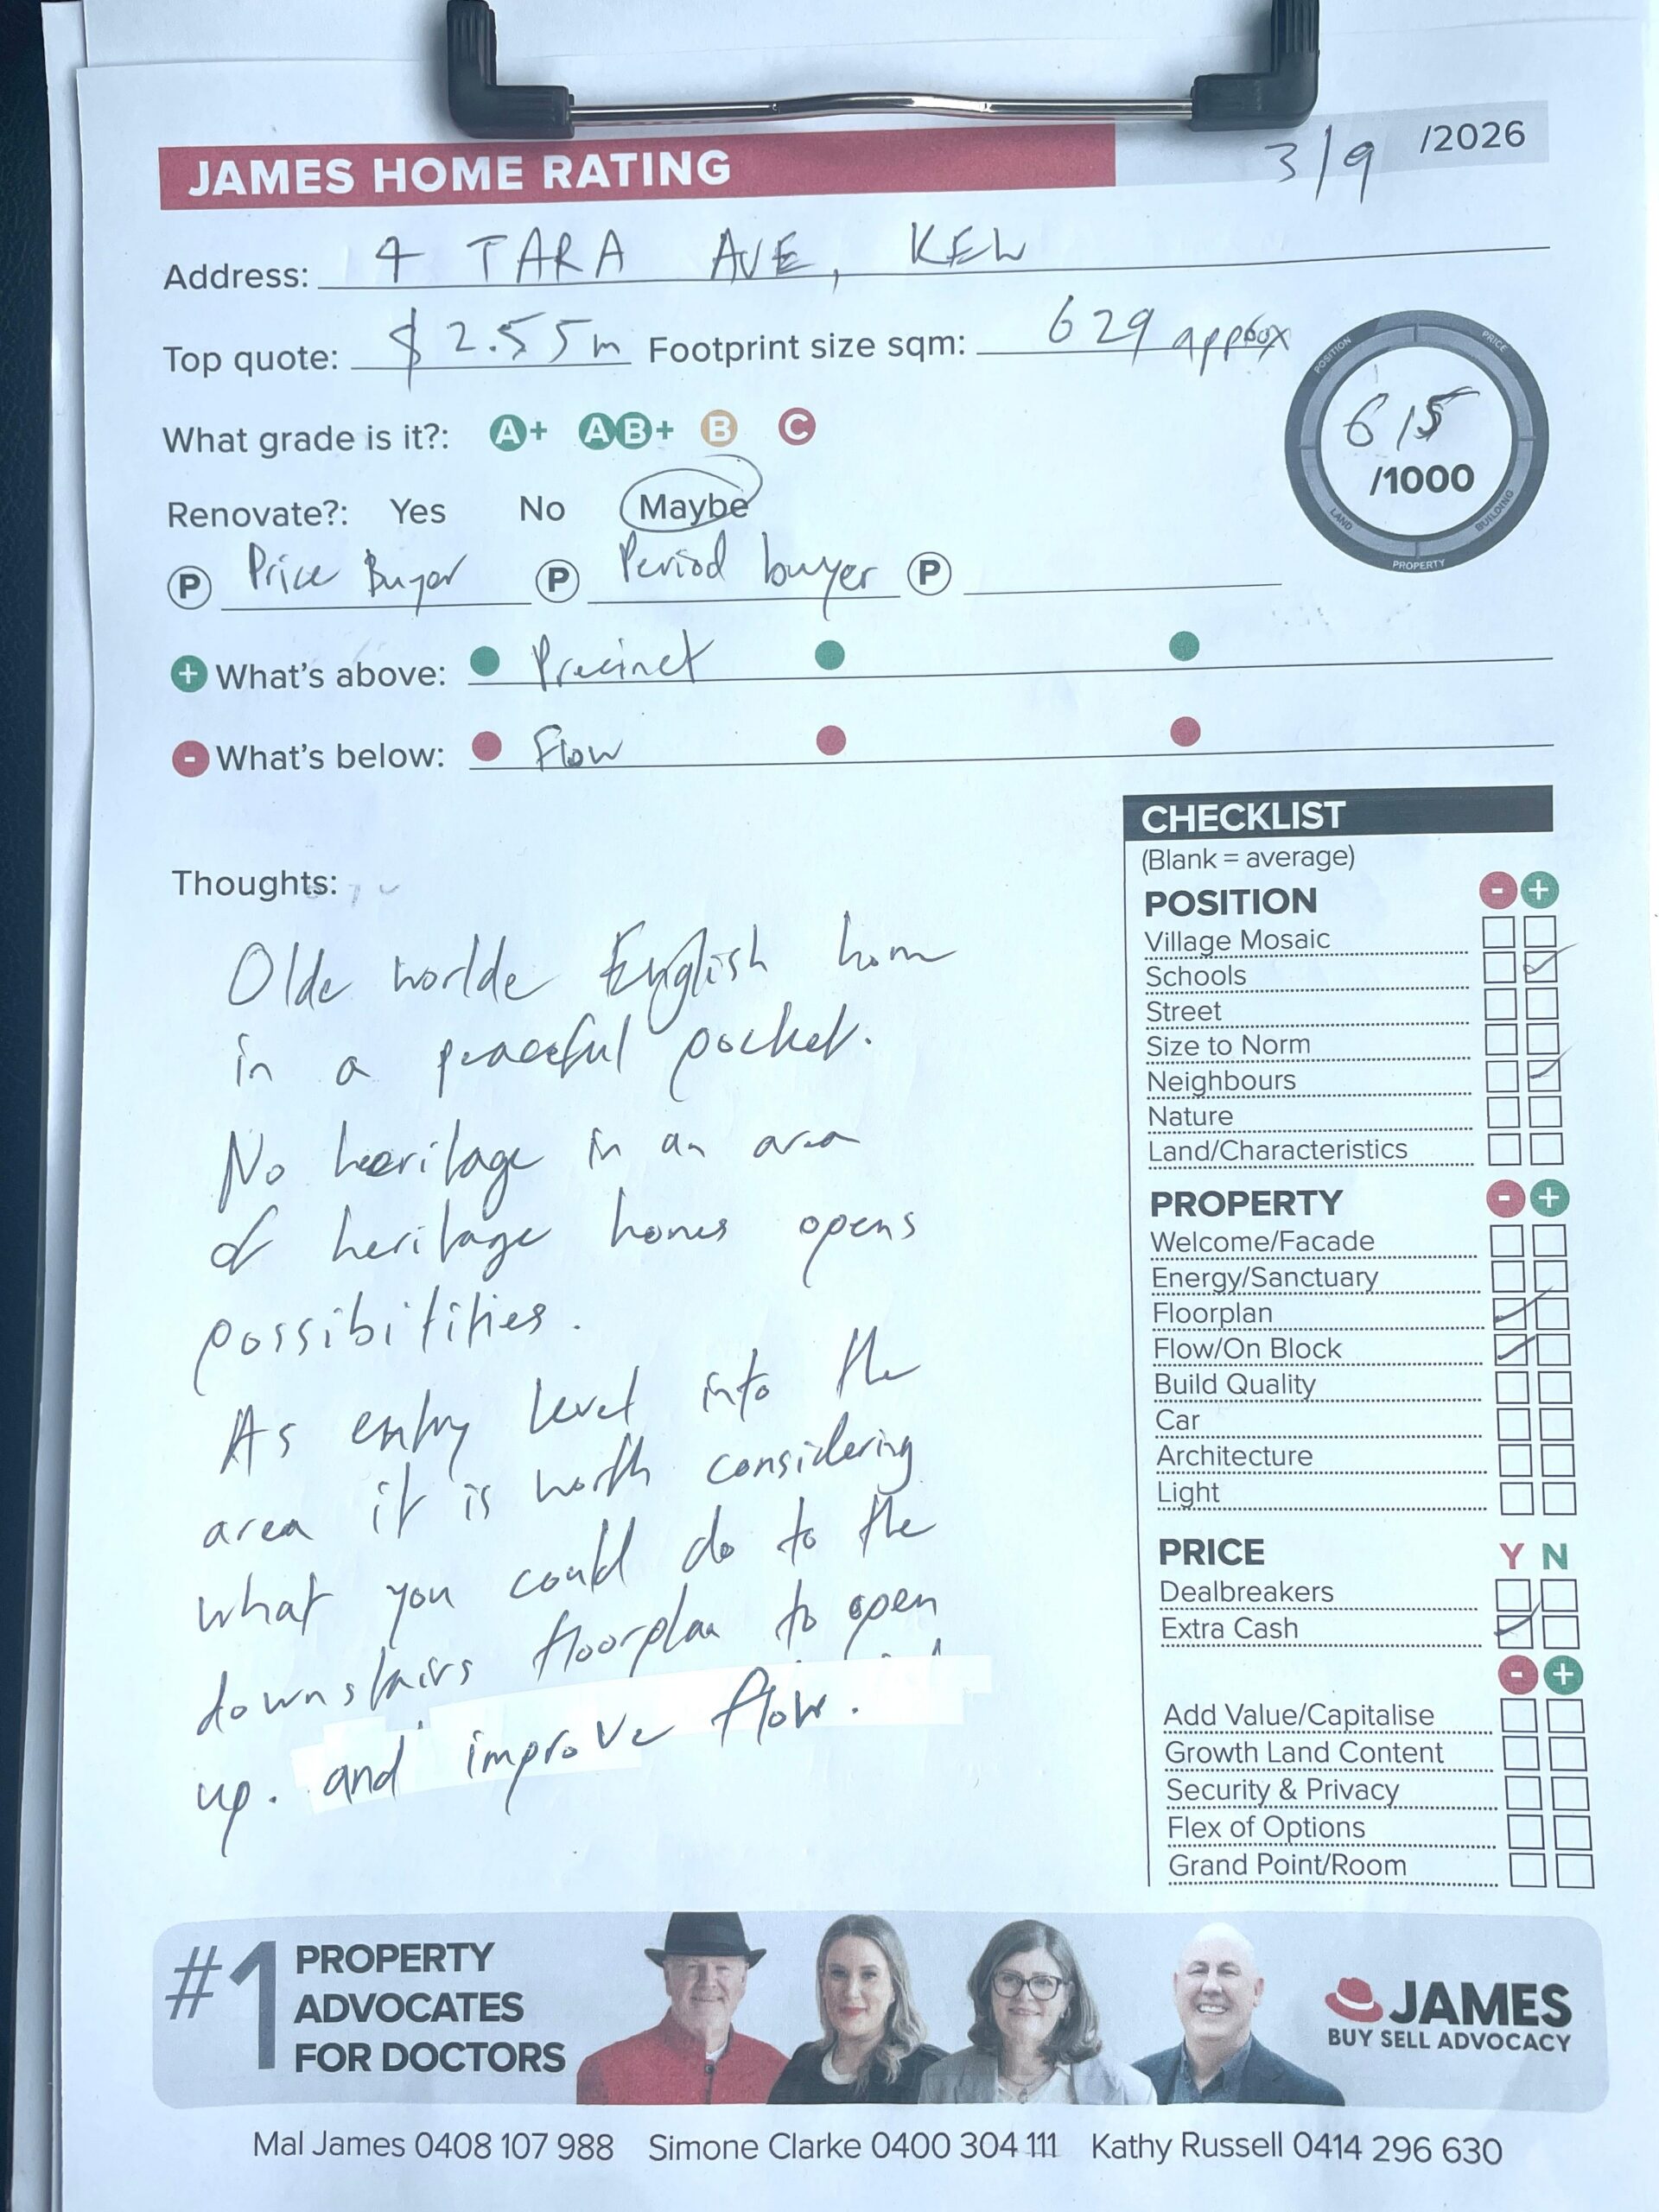 JAMES HOME RATING
3/9 /2026
Address: 4 TARA AVE, KEW
Top quote: $2.55m Footprint size sqm: 629 approx
POSITION PRICE
615
/1000
LAND BUILDING
PROPERTY
What grade is it?: A+ AB+ B C
Renovate?: Yes No Maybe
P Price Buyer P Period buyer P
+ What's above: Precinct
- What's below: Flow
Thoughts:
Olde worlde English hom
in a peaceful pocket.
No heeritage in an area
of heritage homes opens
possibilities.
As entry level into the
area it is worth considering
what you could do to the
downstairs floorplan to open
up. and improve flow.
CHECKLIST
(Blank = average)
POSITION - +
Village Mosaic
Schools
Street
Size to Norm
Neighbours
Nature
Land/Characteristics
PROPERTY - +
Welcome/Facade
Energy/Sanctuary
Floorplan
Flow/On Block
Build Quality
Car
Architecture
Light
PRICE Y N
Dealbreakers
Extra Cash
- +
Add Value/Capitalise
Growth Land Content
Security & Privacy
Flex of Options
Grand Point/Room
#1 PROPERTY
ADVOCATES
FOR DOCTORS
JAMES
BUY SELL ADVOCACY
Mal James 0408 107 988 Simone Clarke 0400 304 111 Kathy Russell 0414 296 630